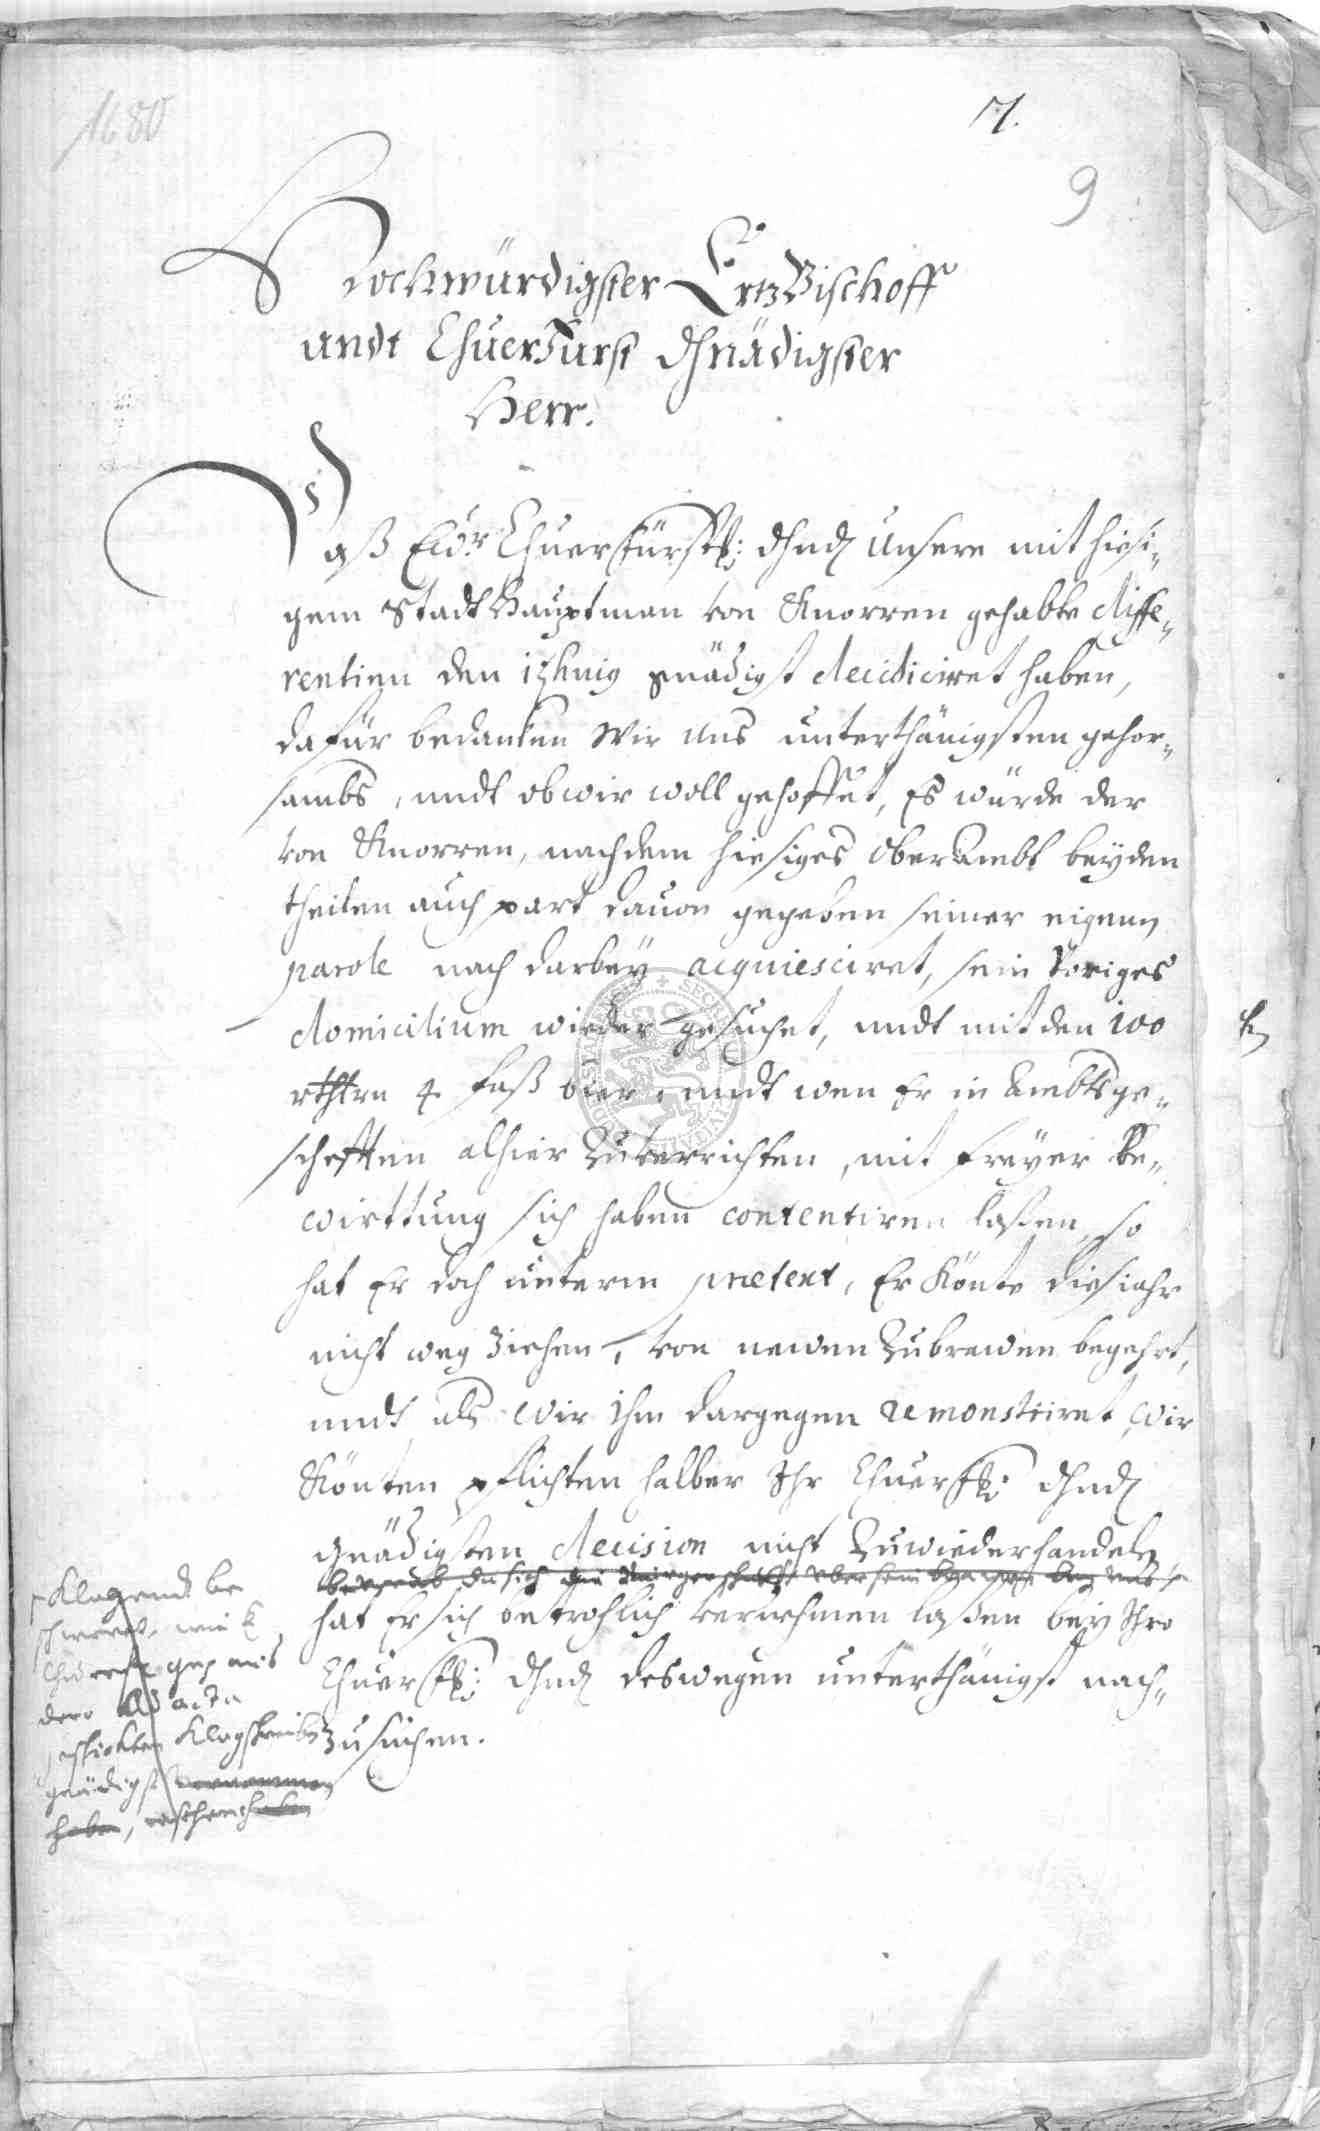 1680
7.
9
Hochwürdigster ErtzBischoff
undt Chuerfürst Gnädigster
Herr.
Daß Ewr Churfürstl: Gnd unsere mit hiesi-
gem Stadt Hauptman von Knorren gehabte diffe-
rentien den gnädigst decidiciret haben,
dafür bedanken Wir uns unterthänigsten gehor-
sambs, undt ob wir woll gehoffet, Es würde der
von Knorren, nachdem hiesiges OberAmbt beyden
theilen auch part davon gegeben seiner eigenen
parole nach darbey acquiesciret, sein Voriges
domicilium wieder gesuchet, undt mit den 100
rthlrn 4 faß bier, undt wen Er in Ambtsge-
schefften alhier Zuverrichten, mit freyer Be-
wirttung sich haben contentiren laßen, so
hat Er doch unterm pretext, Er Könte dieß iahr
nicht weg ziehen, von newen Zubrewen begehrt,
undt als Wir ihm dargegen remonstriret, Wir
Könten pflichten halber Ihr Chuerfl: Gnd
gnädigsten decision nicht Zuwiederhandeln
hat Er sich betrohlich vernehmen laßen bey Ihro
Chuerfl: Gnd deswegen unterthänigst nach-
zusuchen.
Klagendt be
schweret, wie
aus
dero
Klagschreiben
gnädigst vernommen
haben, ersehen haben